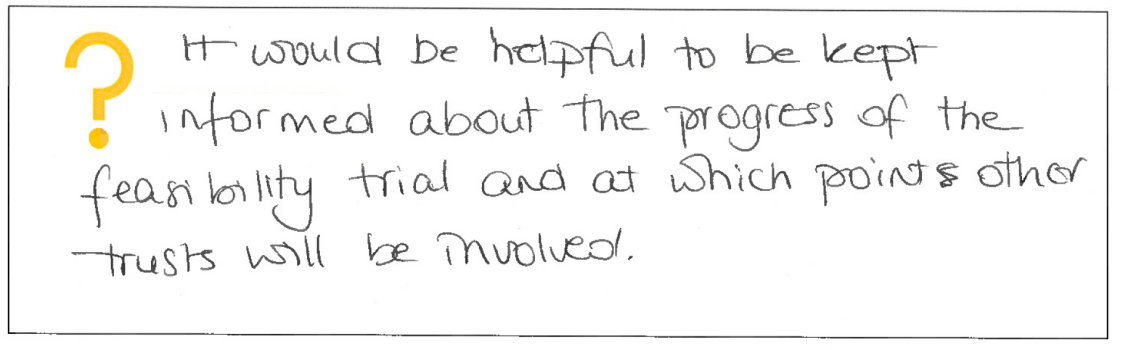 ? It would be helpful to be kept
informed about the progress of the
feasibility trial and at which points other
trusts will be involved.